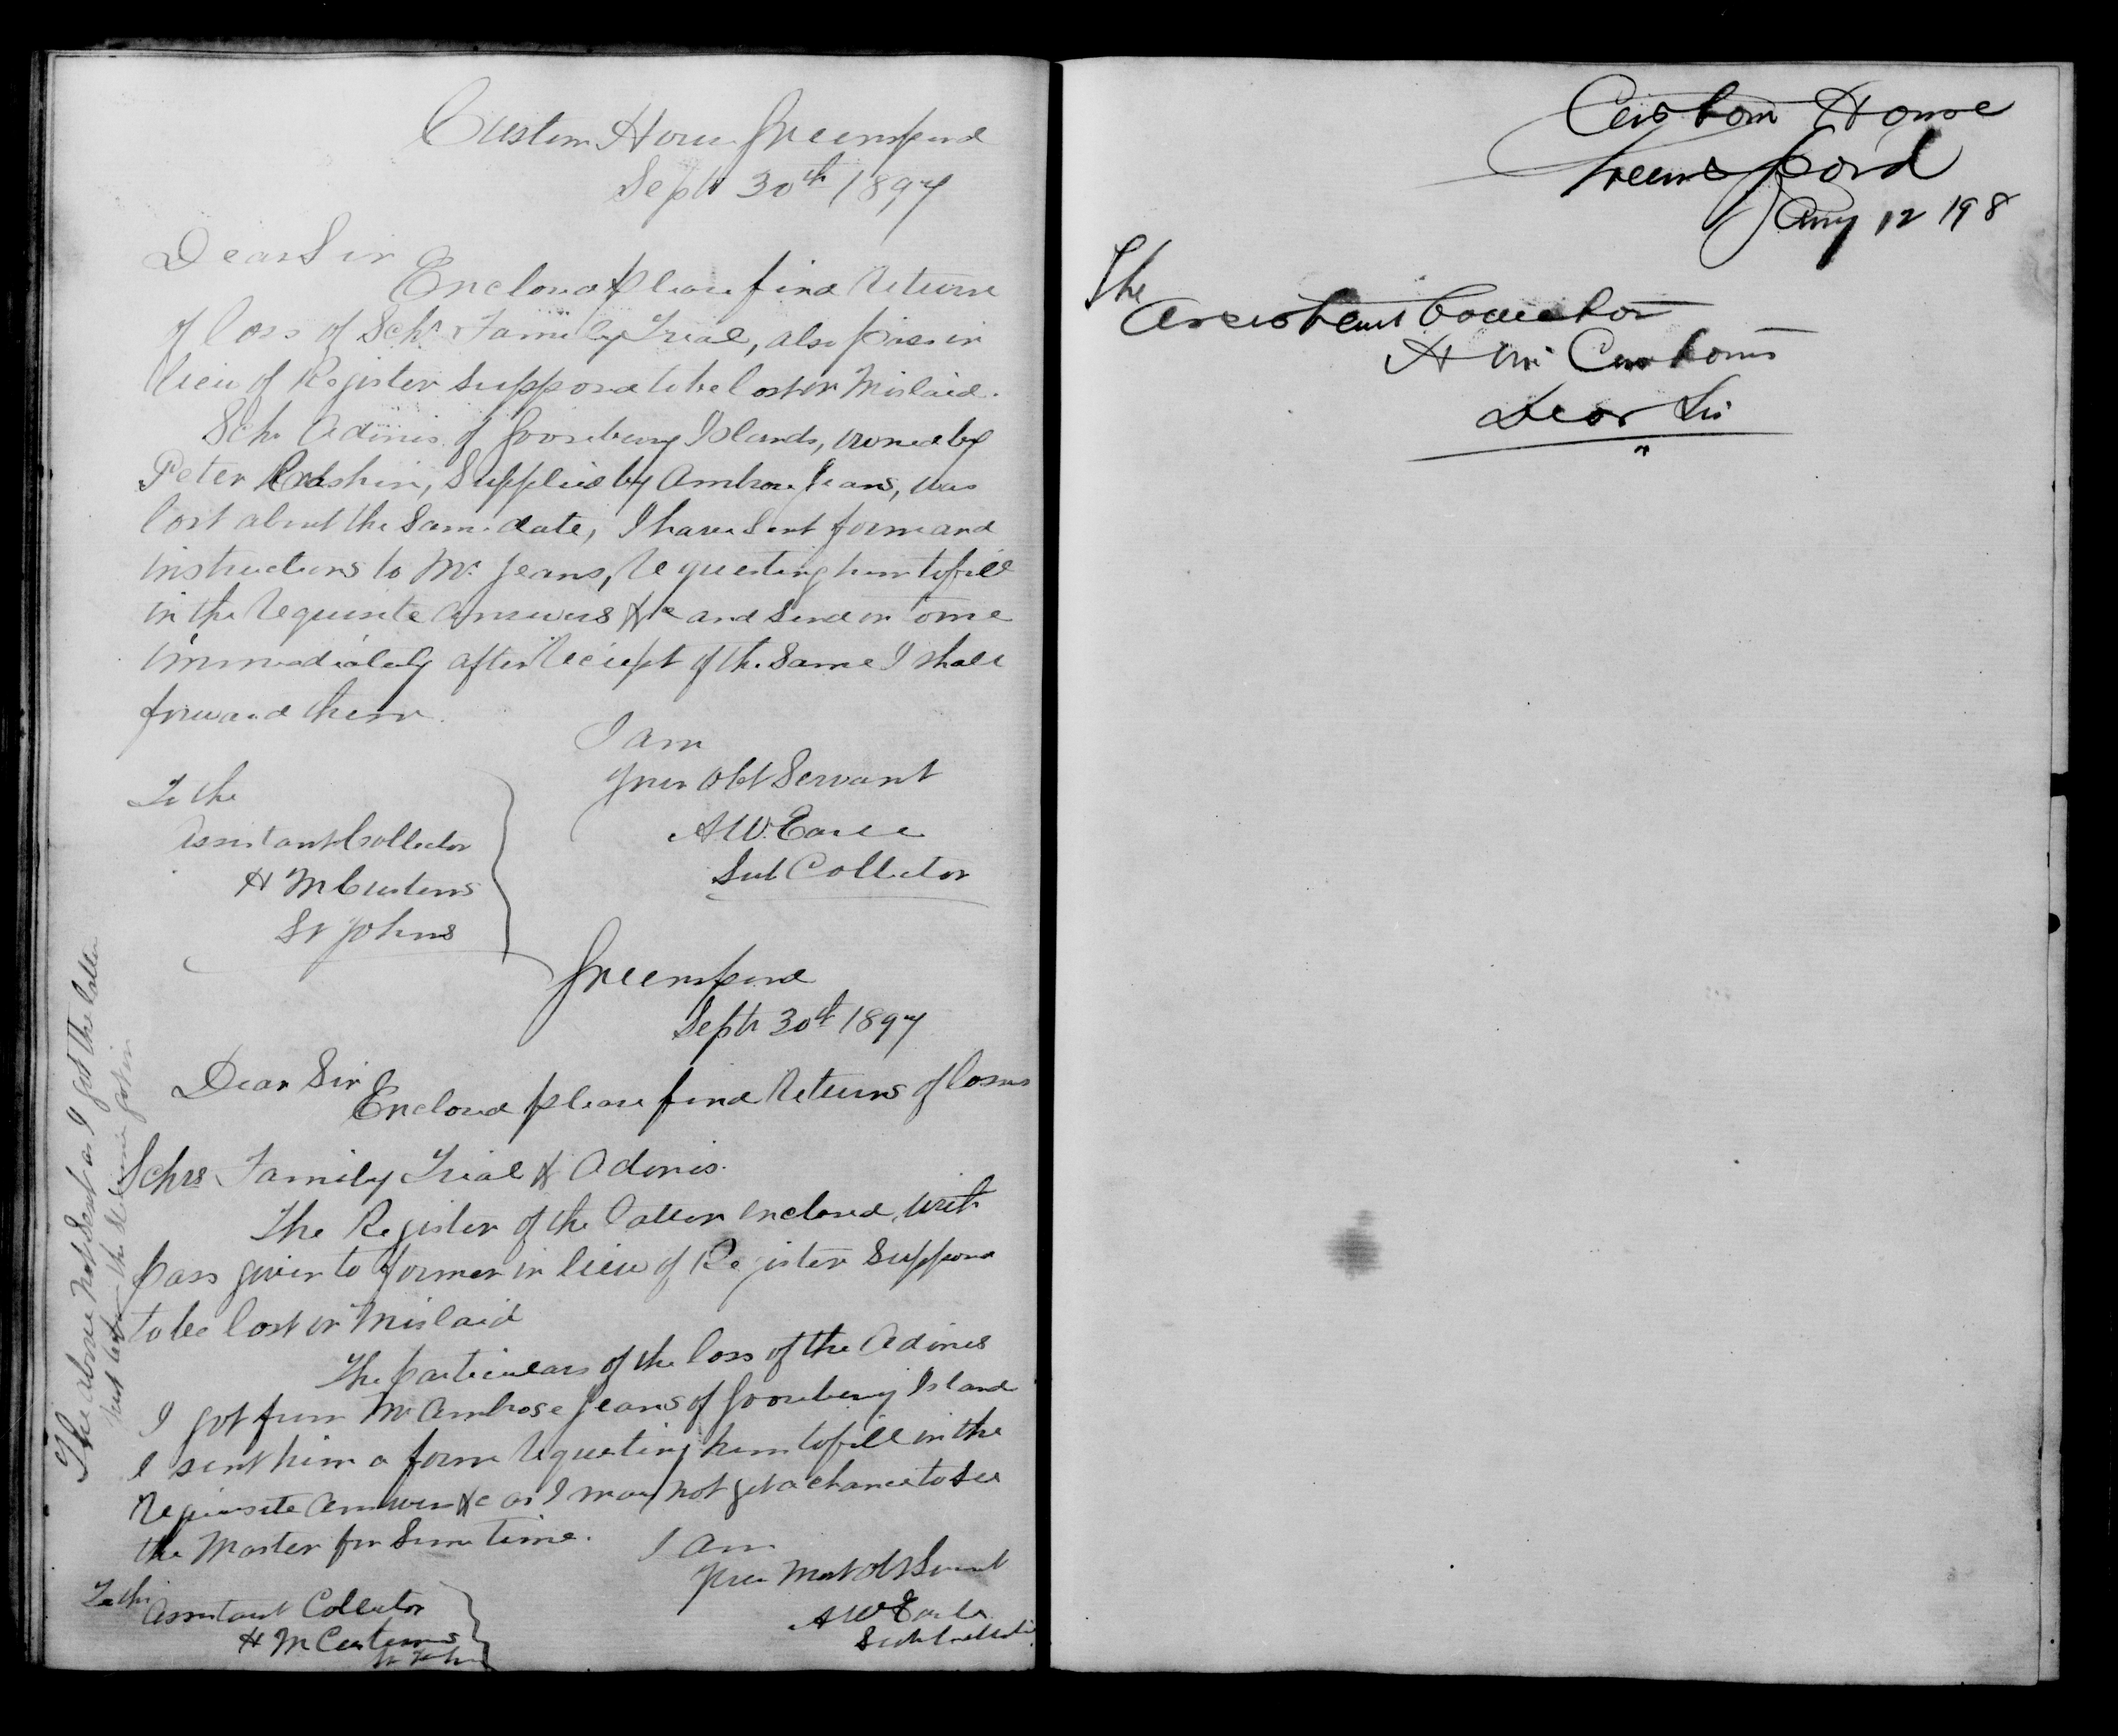 Custom House Greenspond
Septr 30th 1897
Dear Sir
Enclosed please find Return
of loss of Schr Family Trial, also pass in
lieu of Register supposed to be lost or Mislaid.
Schr Adonis of Gooseberry Islands, owned by
Peter, Supplied by Ambrose Jeans, was
lost about the same date, I have sent form and
instructions to Mr Jeans, requesting him to fill
in the requisite answers &c and send on to me
immediately after reciept of the same I shall
forward them.
I am
your obt Servant
A W. Earle
Sub Collector
To the
Assistant Collector
H M Customs
St Johns
Greenspond
Septr 30th 1897
Dear Sir
Enclosed please find Returns of losses
Schrs Family Trial & Adonis.
The Register of the latter enclosed, with
pass given to former in lieu of Register supposed
to be lost or Mislaid
The particulars of the loss of the Adonis
I got from Mr Ambrose Jeans of Gooseberry Island
I sent him a form requesting him to fill in the
requisite answers &c as I may not get a chance to see
the Master for some time.
I am
your Most obt Servant
A W Earle
Sub Collector
To the
Assistant Collector
H M Customs
St Johns
The above not sent as I got the latter
just before the steamer got in
Custom House
Greenspond
Aug 12 198
The
Assistant Collector
H M Customs
Dear Sir